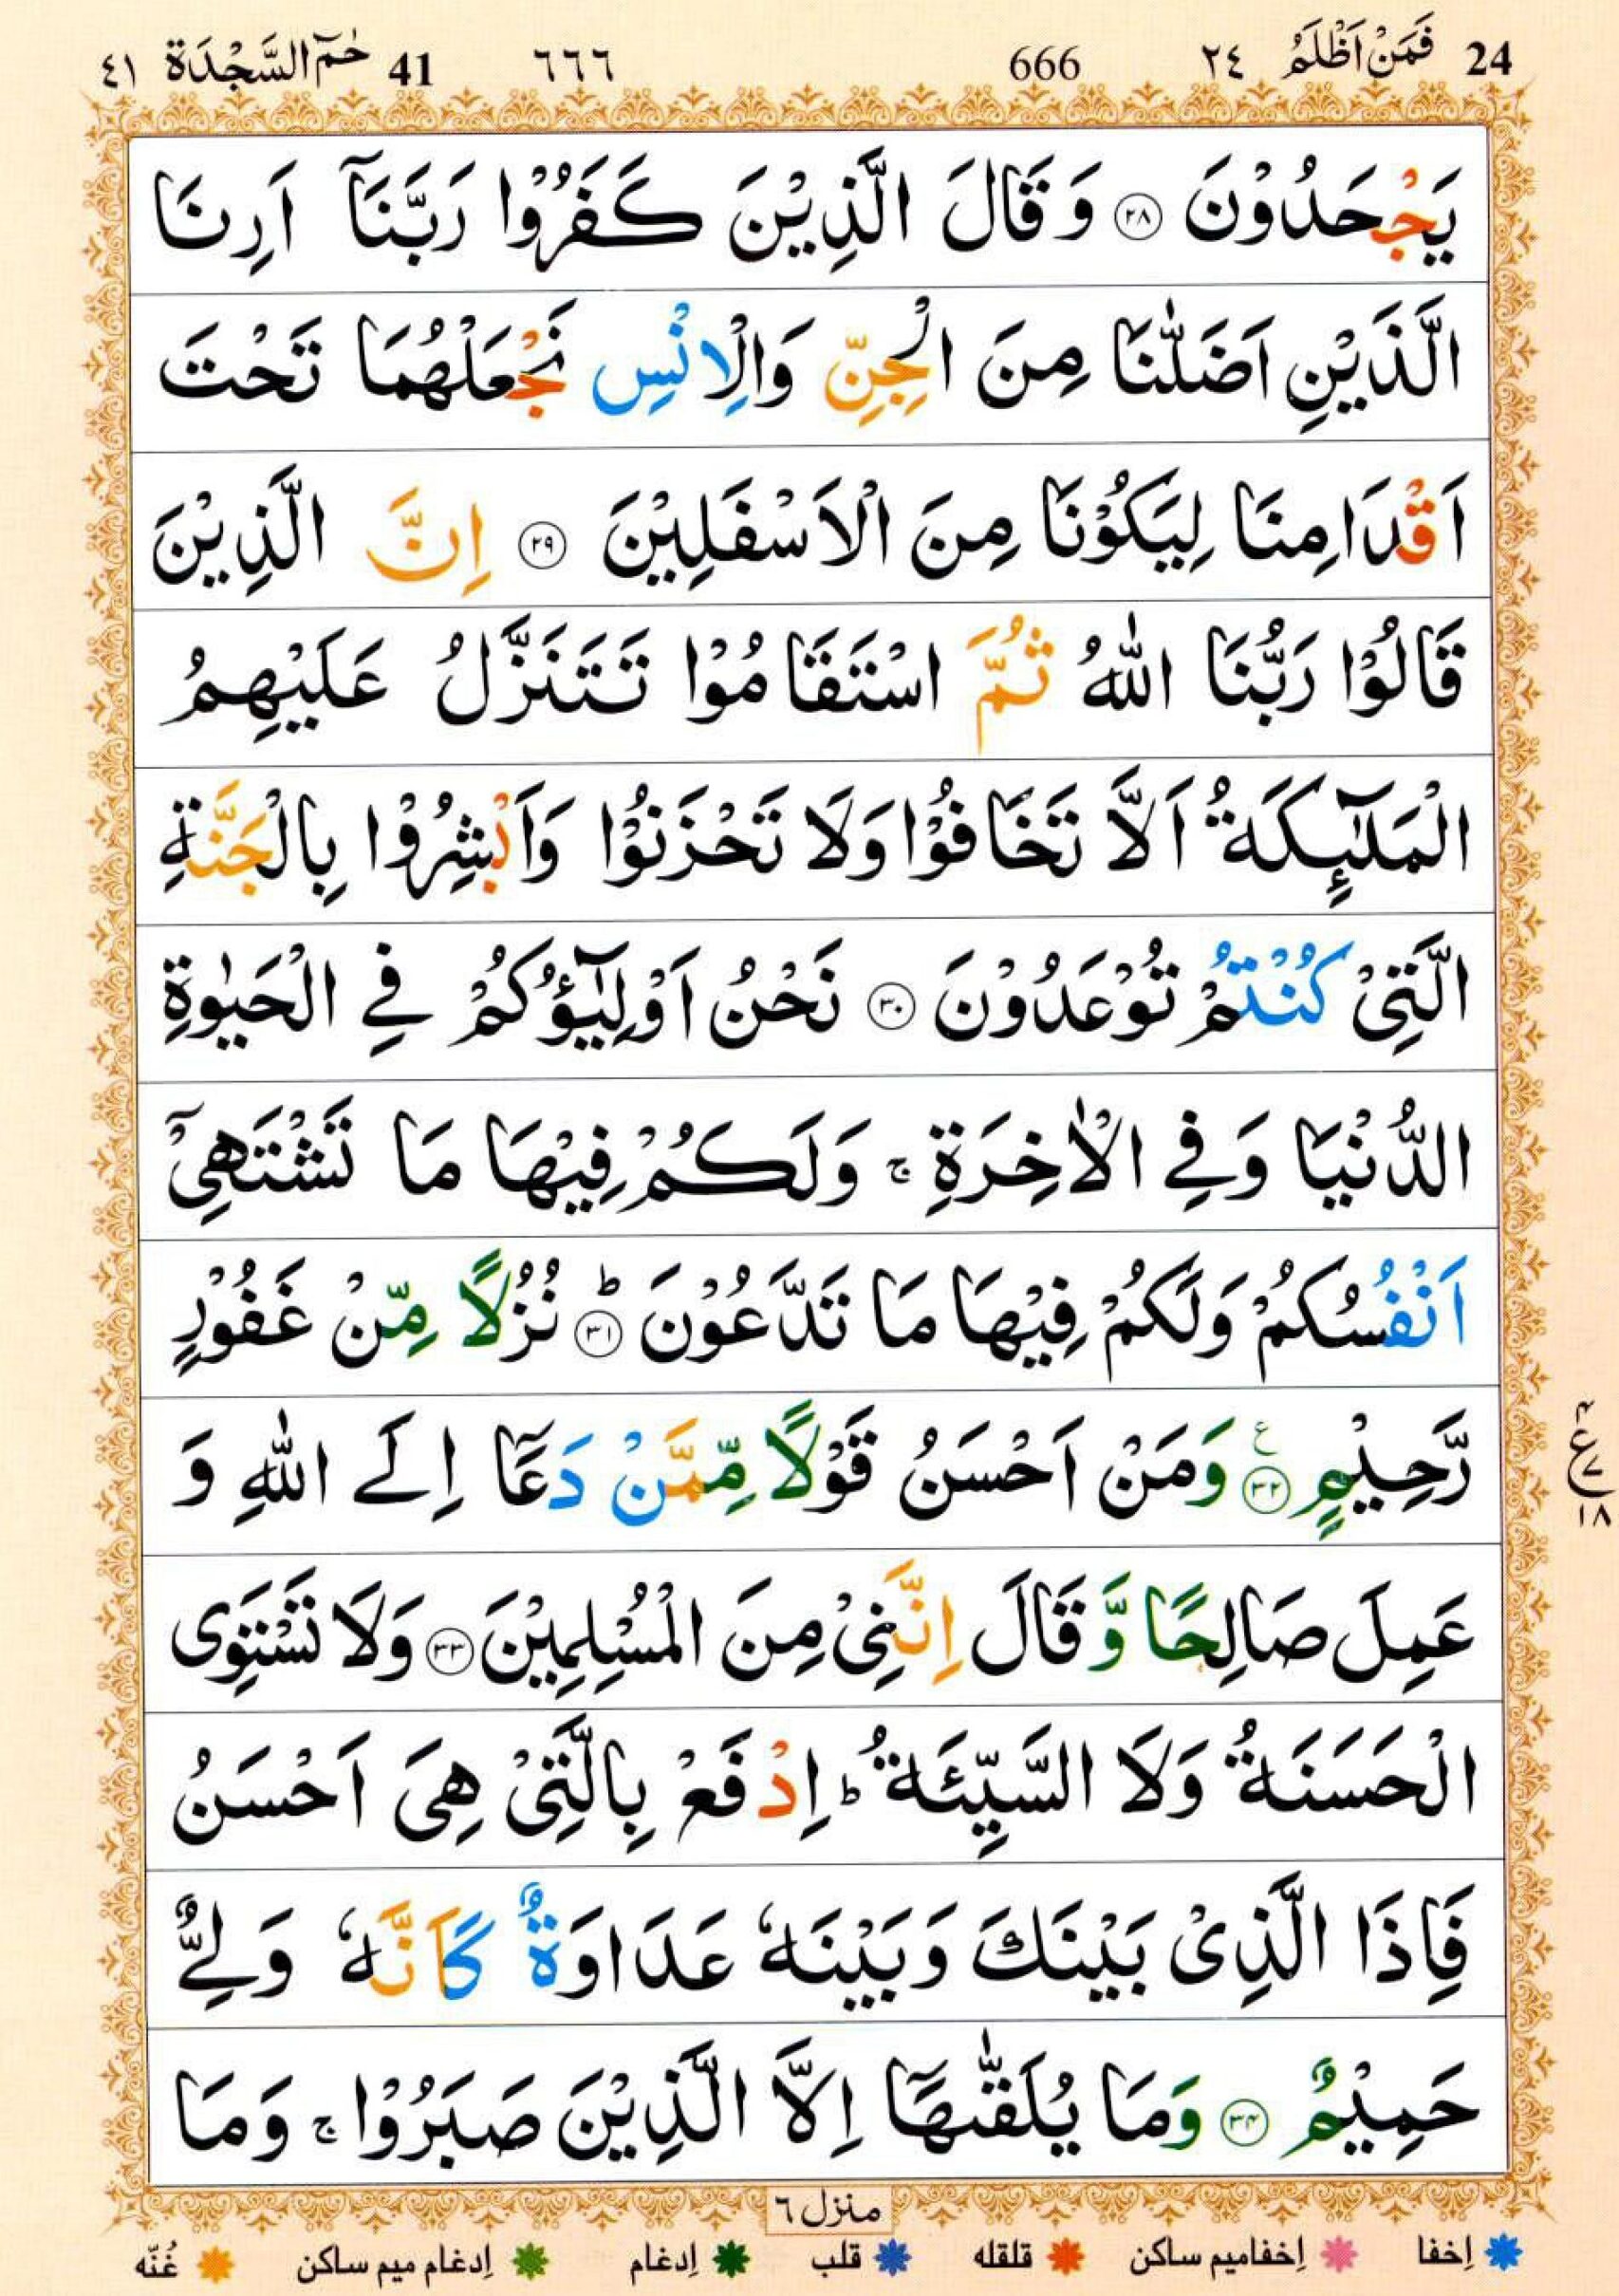 24 فَمَنْ اَظْلَمُ ٢٤ 666 ٦٦٦ 41 حٰمٓ السَّجْدَة ٤١
يَجْحَدُوْنَ ﴿۲۸﴾ وَقَالَ الَّذِيْنَ كَفَرُوْا رَبَّنَاۤ اَرِنَا
الَّذَيْنِ اَضَلّٰنَا مِنَ الْجِنِّ وَالْاِنْسِ نَجْعَلْهُمَا تَحْتَ
اَقْدَامِنَا لِيَكُوْنَا مِنَ الْاَسْفَلِيْنَ ﴿۲۹﴾ اِنَّ الَّذِيْنَ
قَالُوْا رَبُّنَا اللّٰهُ ثُمَّ اسْتَقَامُوْا تَتَنَزَّلُ عَلَيْهِمُ
الْمَلٰٓئِكَةُ اَلَّا تَخَافُوْا وَلَا تَحْزَنُوْا وَاَبْشِرُوْا بِالْجَنَّةِ
الَّتِيْ كُنْتُمْ تُوْعَدُوْنَ ﴿۳۰﴾ نَحْنُ اَوْلِيٰٓؤُكُمْ فِي الْحَيٰوةِ
الدُّنْيَا وَفِي الْاٰخِرَةِ ۚ وَلَكُمْ فِيْهَا مَا تَشْتَهِيْۤ
اَنْفُسُكُمْ وَلَكُمْ فِيْهَا مَا تَدَّعُوْنَ ؕ﴿۳۱﴾ نُزُلًا مِّنْ غَفُوْرٍ
رَّحِيْمٍ ﴿۳۲﴾ ع وَمَنْ اَحْسَنُ قَوْلًا مِّمَّنْ دَعَاۤ اِلَى اللّٰهِ وَ
عَمِلَ صَالِحًا وَّقَالَ اِنَّنِيْ مِنَ الْمُسْلِمِيْنَ ﴿۳۳﴾ وَلَا تَسْتَوِى
الْحَسَنَةُ وَلَا السَّيِّئَةُ ؕ اِدْفَعْ بِالَّتِيْ هِيَ اَحْسَنُ
فَاِذَا الَّذِيْ بَيْنَكَ وَبَيْنَهٗ عَدَاوَةٌ كَاَنَّهٗ وَلِيٌّ
حَمِيْمٌ ﴿۳۴﴾ وَمَا يُلَقّٰىهَاۤ اِلَّا الَّذِيْنَ صَبَرُوْا ۚ وَمَا
٤ ع ٧ ١٨
منزل ٦
اِخفا اِخفامیم ساکن قلقله قلب اِدغام اِدغام میم ساکن غُنّه